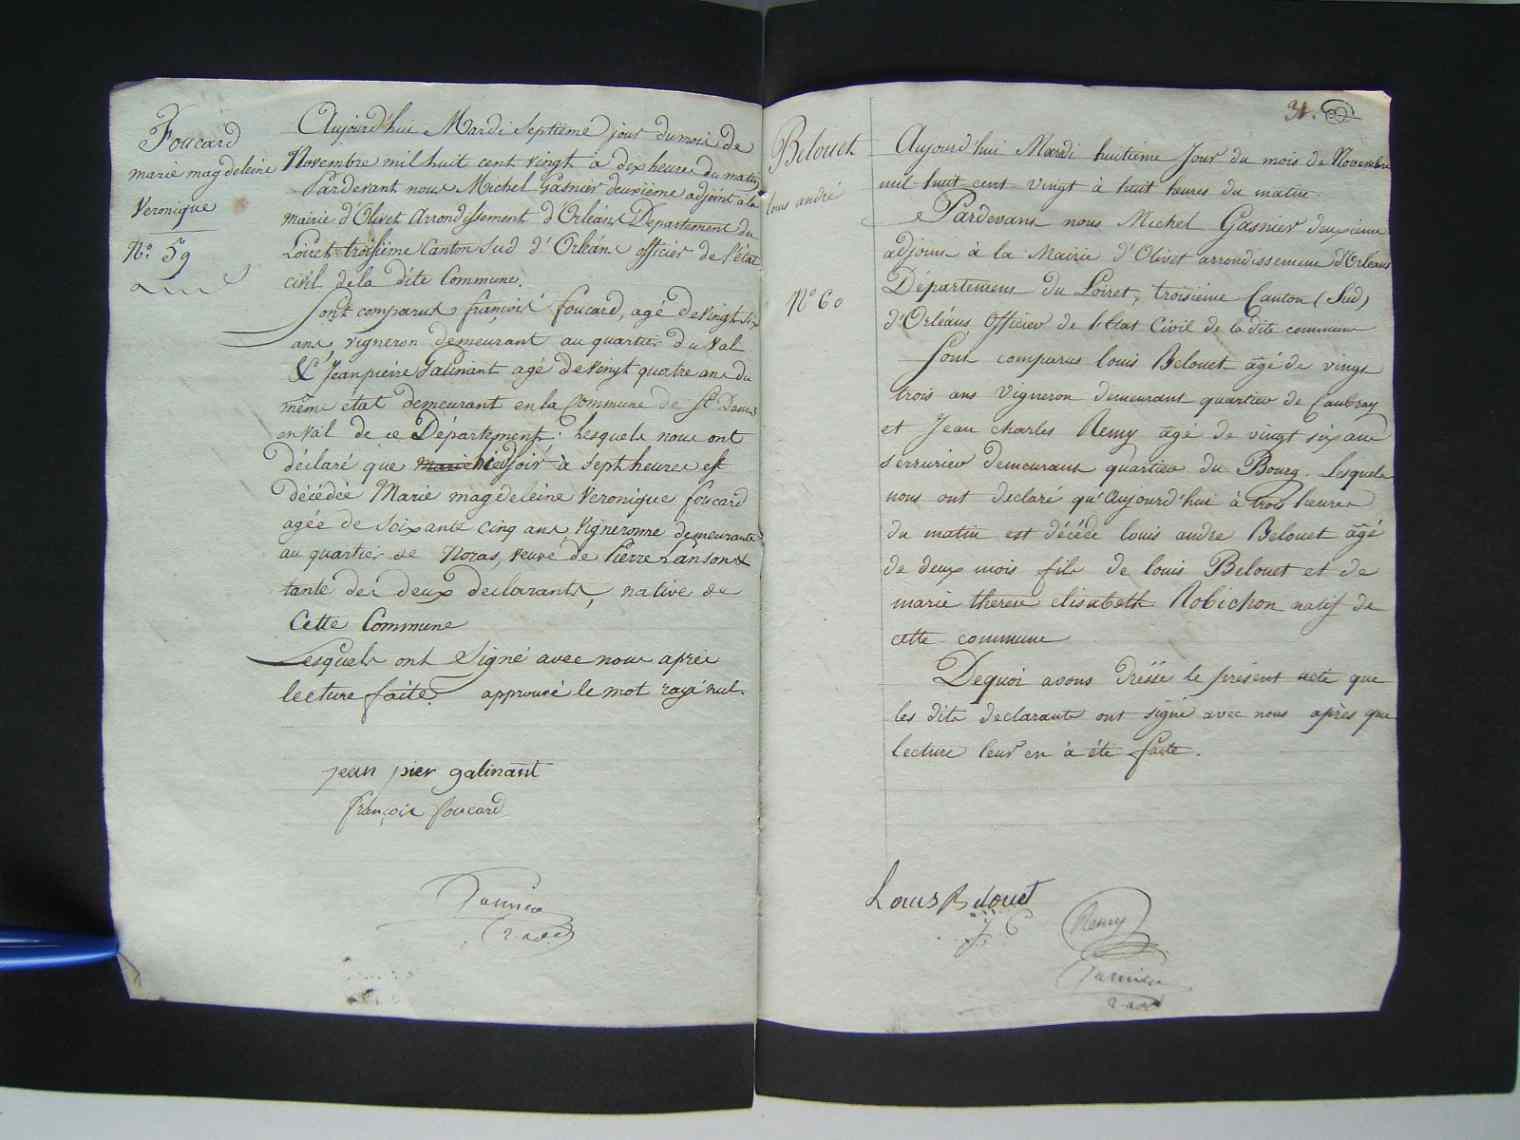 Foucard
marie magdeleine
Veronique
N.o 59
Aujourd'hui Mardi Septieme jour du mois de
Novembre mil huit cent vingt à dix heures du matin
Pardevant nous Michel Gasnier deuxième adjoint à la
mairie d'Olivet Arrondissement d'Orléans Departement du
Loiret troisième Canton Sud d'Orléans officier de l'état
civil de la dite Commune.
Sont comparus françois foucard, agé de vingt six
ans, vigneron demeurant au quartier du Val
& Jean pierre Galinant agé de vingt quatre ans du
même état demeurant en la Commune de St Denis
en val de ce Département. Lesquels nous ont
déclaré que marie hier soir à sept heures est
décédée Marie magdeleine Veronique foucard
agée de soixante cinq ans, Vigneronne demeurante
au quartier de Noras, veuve de Pierre Lanson &
tante des deux declarants, native de
Cette Commune
Lesquels ont Signé avec nous après
lecture faite. approuvé le mot rayé nul.
jean pier galinant
françois foucard
Gasnier
2 adj
31.
Belouet
louis andré
N.o 60
Aujourd'hui Mardi huitieme Jour du mois de Novembre
mil huit cent vingt à huit heures du matin
Pardevant nous Michel Gasnier deuxieme
adjoint à la Mairie d'Olivet arrondissement d'Orléans
Département du Loiret, troisième Canton (Sud)
d'Orléans, Officier de l'état Civil de la dite commune
Sont comparus louis Belouet âgé de vingt
trois ans Vigneron demeurant quartier de Caubray
et Jean Charles Remy âgé de vingt six ans
serrurier demeurant quartier du Bourg. Lesquels
nous ont declaré qu'Aujourd'hui à trois heures
du matin est décédé louis andre Belouet âgé
de deux mois fils de louis Belouet et de
marie therese elisabeth Robichon natif de
cette commune
Dequoi avons dressé le présent acte que
les dits declarants ont signé avec nous après que
lecture leur en à été faite.
Louis Belouet
J C Remy
Gasnier
2 adj